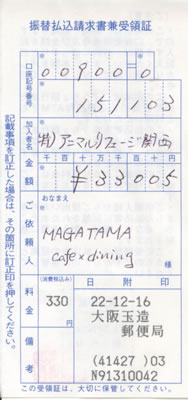 振替払込請求書兼受領証
口座記号番号
00900=0
151103
加入者名
(特)アニマルレフュージ関西
金額
千百十万千百十円
¥33005
ご依頼人
おなまえ
MAGATAMA
cafe×dining
様
料金
(消費税込み)
330
円
備考
日附印
22-12-16
大阪玉造
郵便局
(41427)03
N91310042
記載事項を訂正した場合は、その箇所に訂正印を押してください。
この受領証は、大切に保管してください。